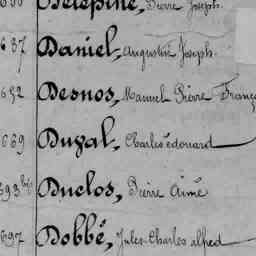 Delépine, Pierre Joseph.
637 Daniel, Augustin Joseph.
652 Desnos, Manuel Pierre Franç
669 Duval, Charles édouard
693 bis Duclos, Pierre Aimé
697 Dobbé, Jules Charles alfred